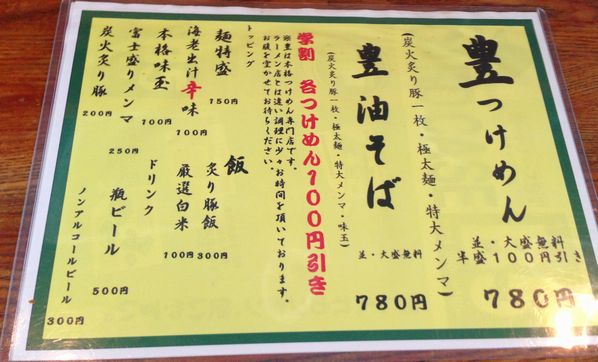 豊つけめん
(炭火炙り豚一枚・極太麺・特大メンマ)
並・大盛無料
半盛100円引き
780円
豊油そば
(炭火炙り豚一枚・極太麺・特大メンマ・味玉)
並・大盛無料
780円
学割 各つけめん100円引き
※豊は本格つけめん専門店です。
ラーメン店とは違い調理に少々お時間を頂いております。
お腹を空かせてお待ちください。
トッピング
麺特盛 150円
海老出汁辛味 100円
本格味玉 100円
富士盛りメンマ 250円
炭火炙り豚 200円
飯
炙り豚飯 300円
厳選白米 100円
ドリンク
瓶ビール 500円
ノンアルコールビール 300円